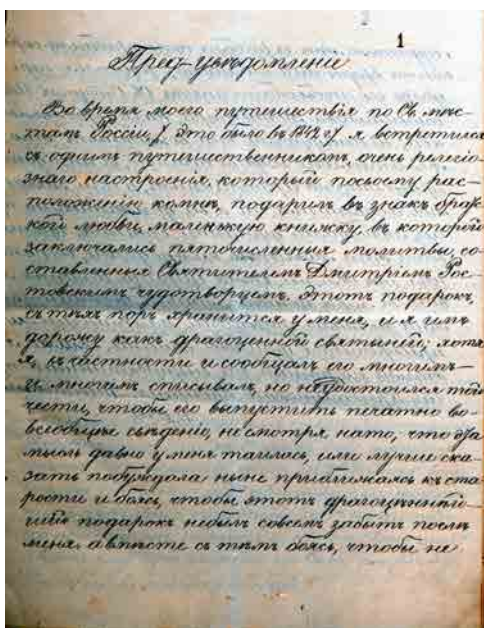 1
Пред-увѣдомленіе
Во время моего путешествія по Св. мѣс-
тамъ Россіи, /. Это было въ 1842 г./ я встретился
съ однимъ путешественникомъ, очень религіо-
знаго настроенія, который посвоему рас-
положенію комнѣ, подарилъ въ знакъ брат-
кой любви, маленькую книжку, въ которой
заключались пяточисленныя молитвы, со-
ставленныя Святителемъ Дмитріемъ Рос-
товскимъ чудотворцемъ. Этотъ подарокъ,
съ тѣхъ поръ хранится у меня, и я имъ
дорожу какъ драгоценной святыней; хотя
я, въ частности и сообщалъ его многимъ
и многимъ списывалъ, но недостоился той
чести, чтобы его выпустить печатно во-
всеобщее сведеніе, несмотря на то, что эта
мысль давно у меня таилась, или лучше ска-
зать побуждала ныне приближаясь къ ста-
рости и боясь, чтобы этотъ драгоценнѣй-
шій подарокъ небылъ совсемъ забытъ послѣ
меня, а вместе съ тѣмъ боясь, чтобы не